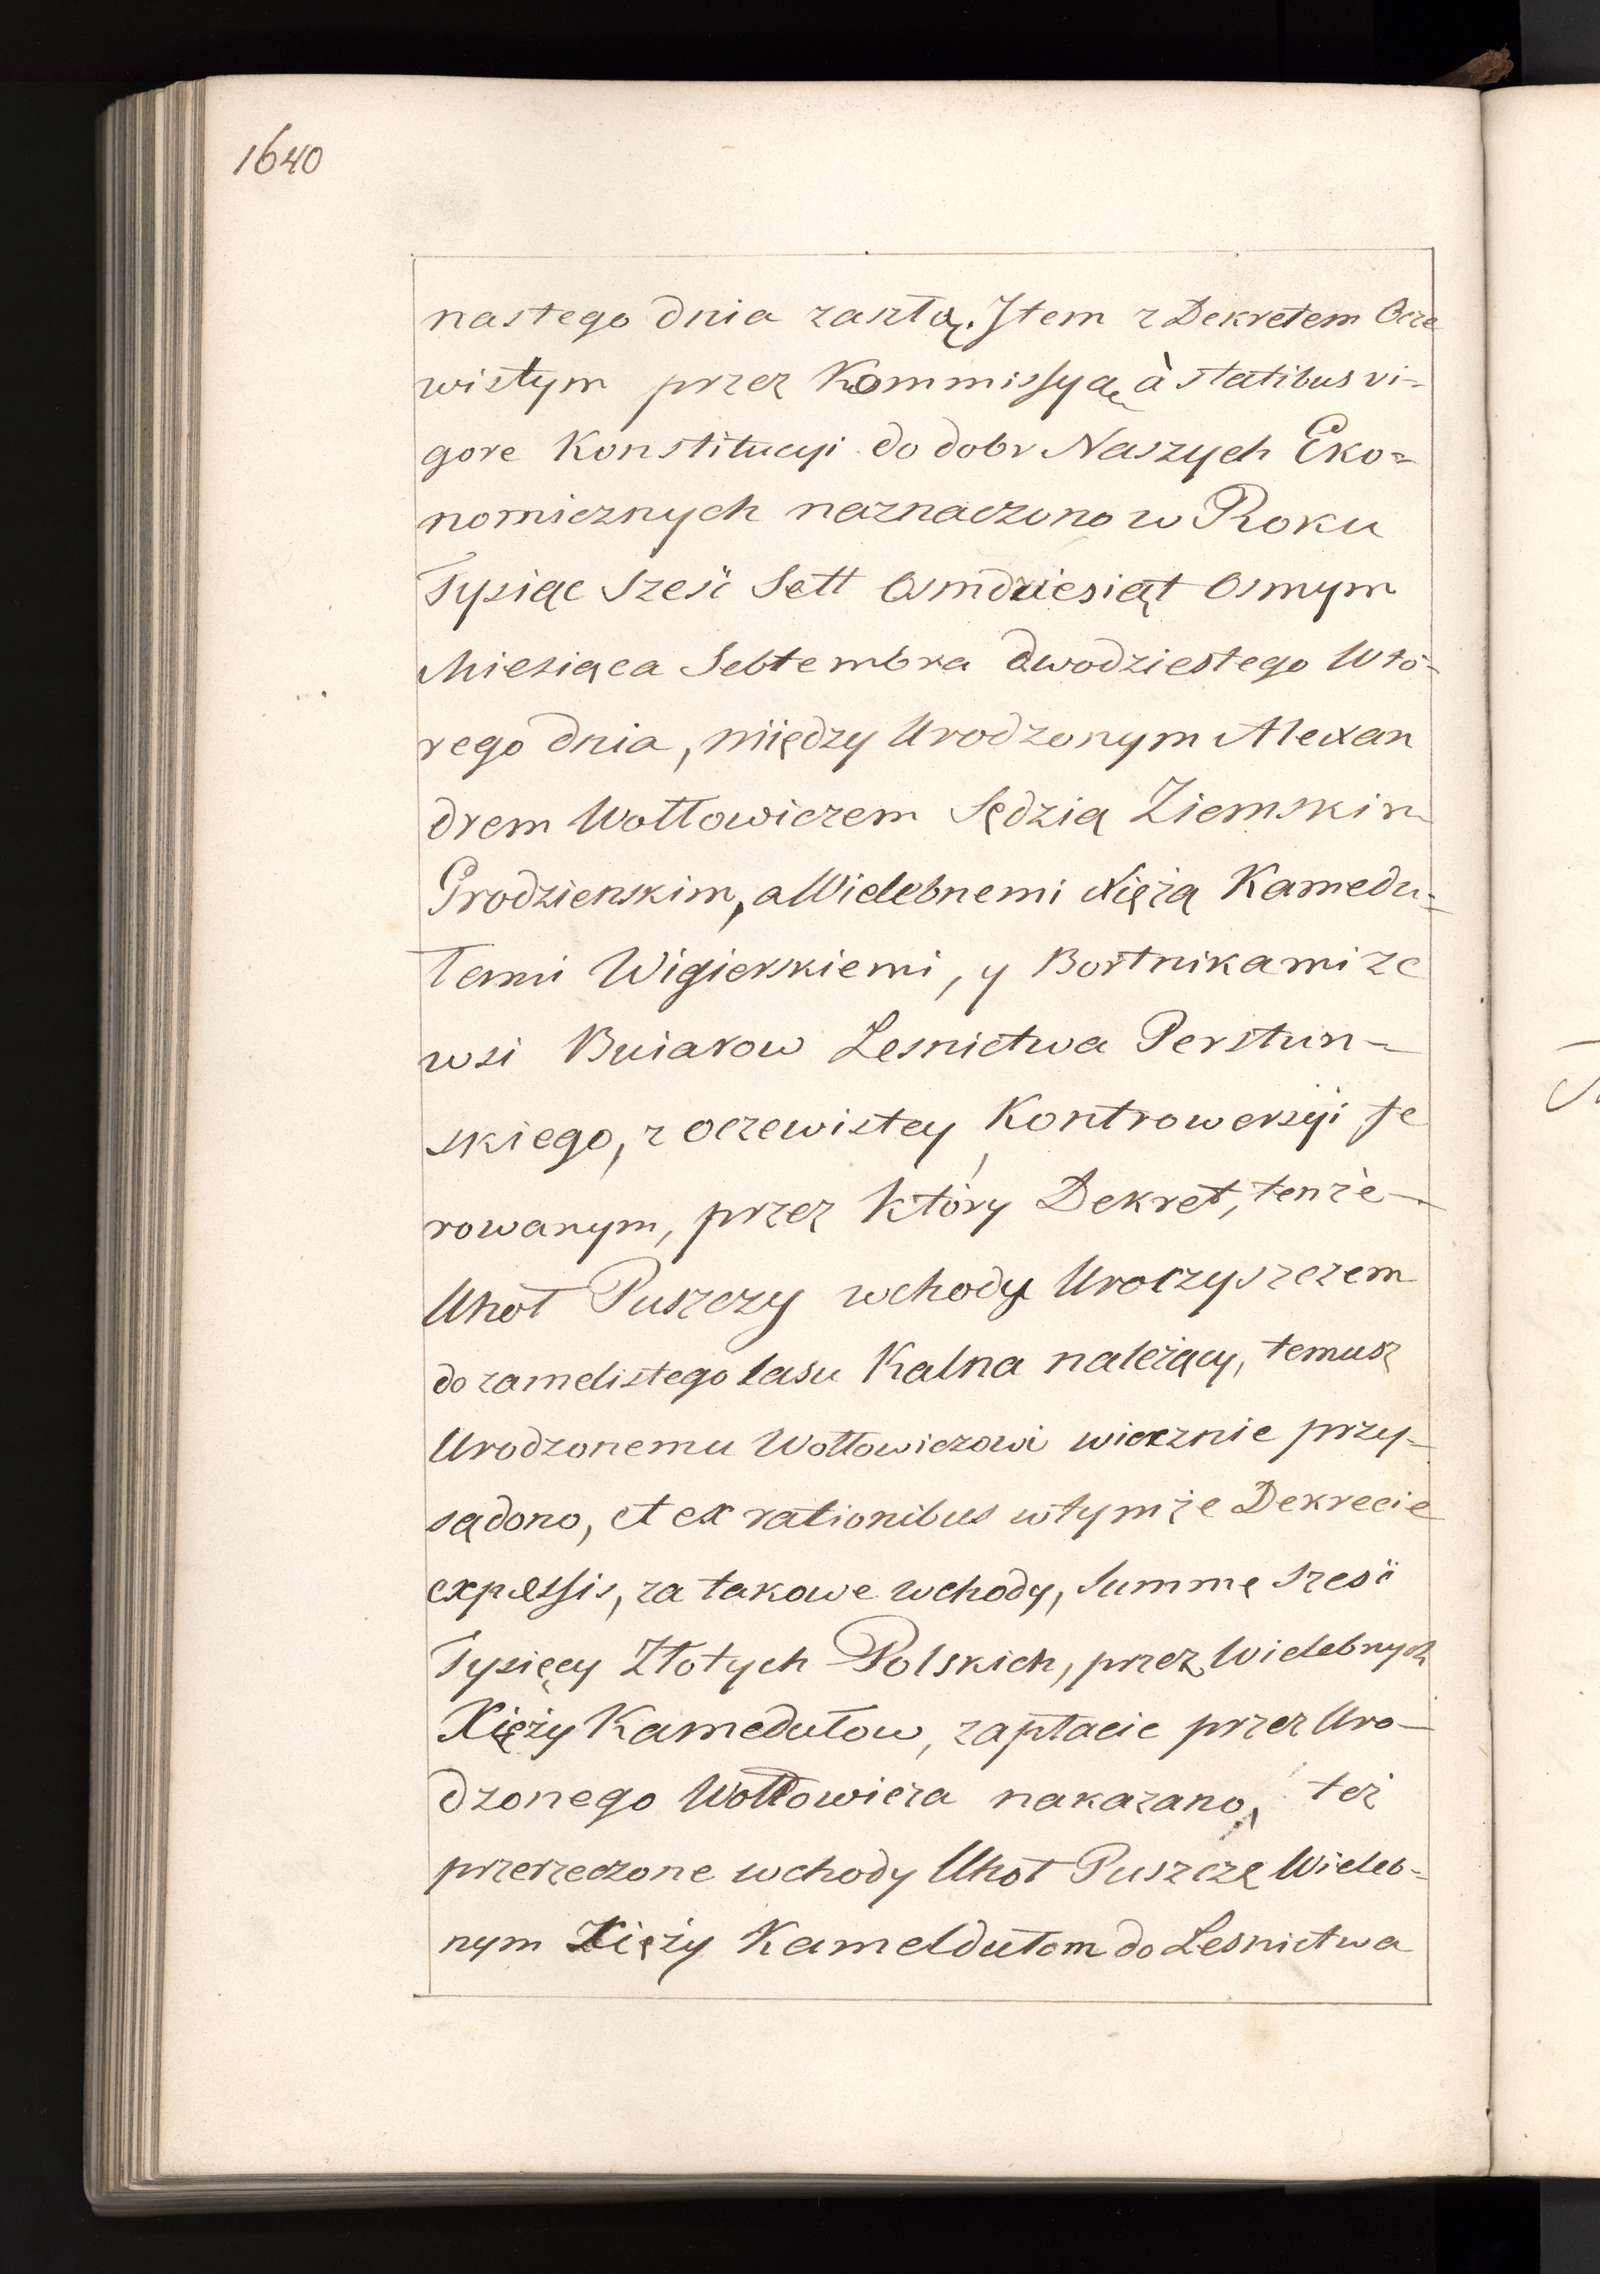 1640
nastego dnia zaszłą. Item z Dekretem Ocze
wistym przez Kommissyą à statibus vi-
gore Konstitucyi do dobr Naszych Eko-
nomicznych naznaczono w Roku
Tysiąc Sześć Sett Osmdziesiąt Osmym
Miesiąca Sebtembra dwodziestego Wtó-
rego dnia, między Urodzonym Alexan
drem Wołłowiczem Sędzią Ziemskim
Grodzienskim, a Wielebnemi Xiężą Kamedu-
łami Wigierskiemi, y Bortnikami ze
wsi Bujarow Lesnictwa Perstun-
skiego, z oczewistey Kontrowersyi fe
rowanym, przez który Dekret, tenże
Uhoł Puszczy wchody Uroczyszczem
do zamelistego lasu Kalna należący, temusz
Urodzonemu Wołłowiczowi wiecznie przy-
sądono, et ex rationibus w tymże Dekrecie
expressis, za takowe wchody, Summę sześć
Tysięcy Złotych Polskich, przez Wielebnych
Xięży Kamedułow, zapłacic przez Uro-
dzonego Wołłowicza nakazano, też
przerzeczone wchody Uhoł Puszczę Wieleb-
nym Xięży Kameldułom do Lesnictwa